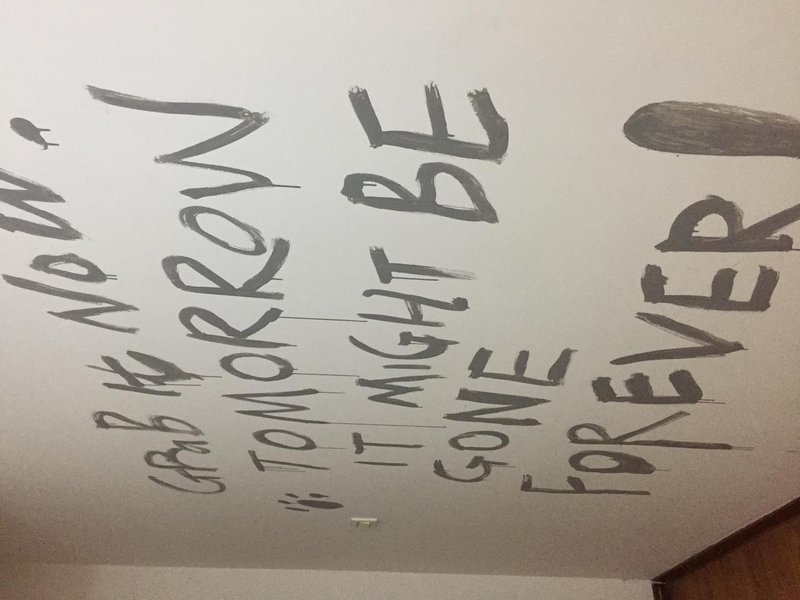 GRAB IT NOW,
TOMORROW
IT MIGHT BE
GONE
FOREVER!